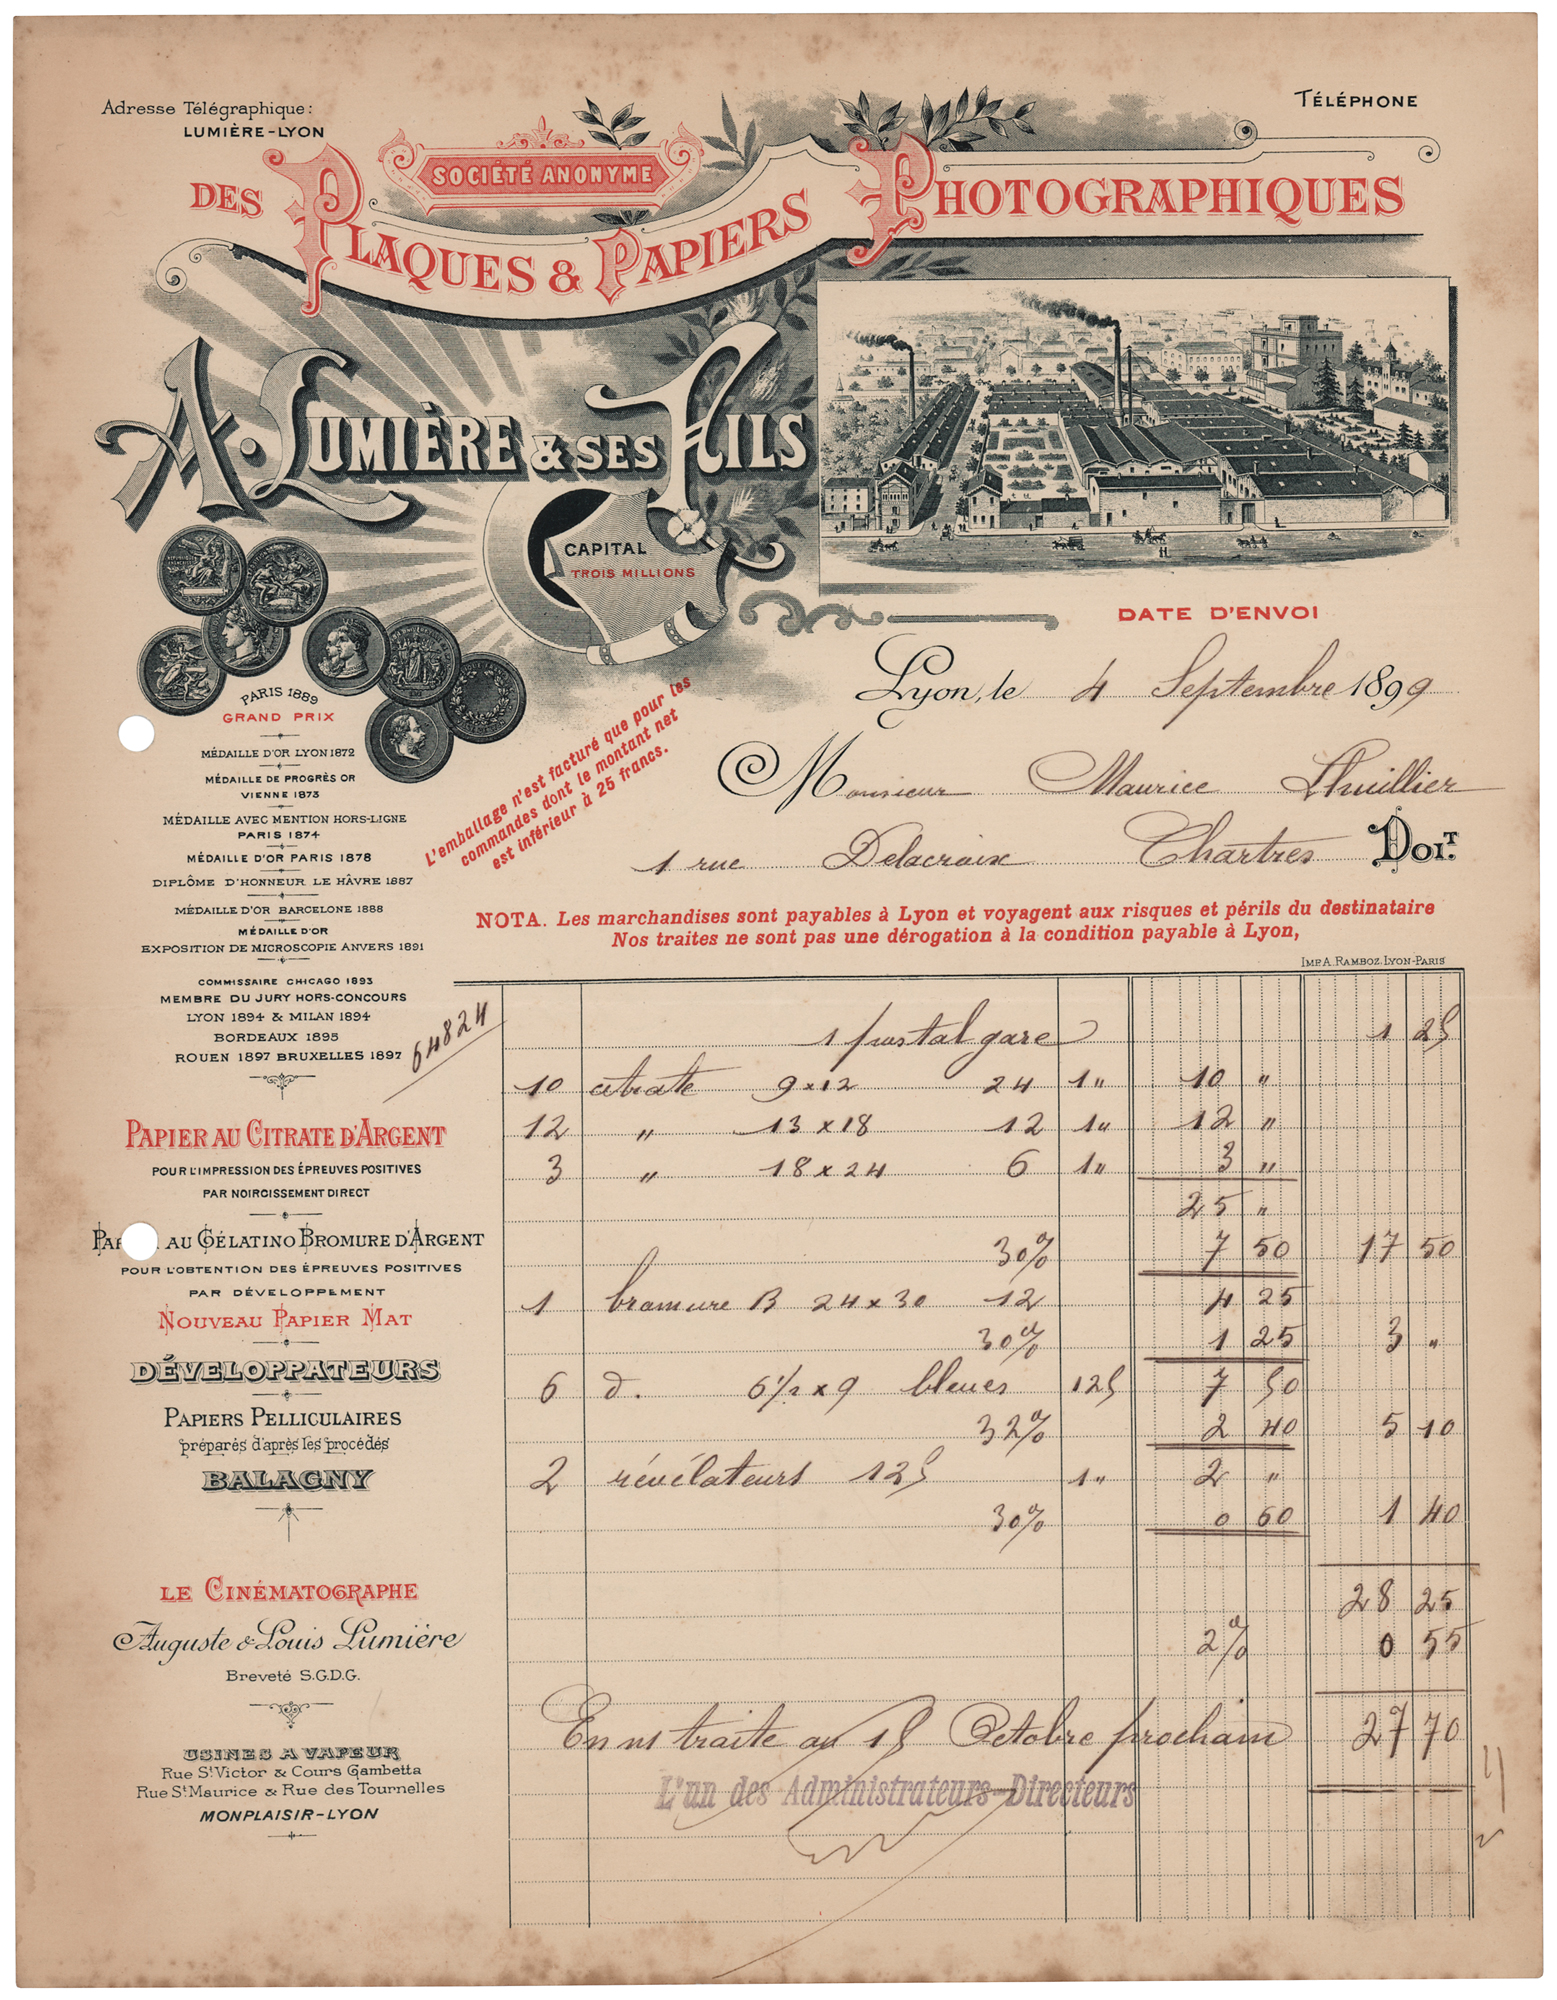 Adresse Télégraphique:
LUMIÈRE-LYON
TÉLÉPHONE
SOCIÉTÉ ANONYME
DES PLAQUES & PAPIERS PHOTOGRAPHIQUES
A. LUMIÈRE & SES FILS
CAPITAL
TROIS MILLIONS
DATE D'ENVOI
Lyon, le 4 Septembre 1899
Monsieur Maurice Lhuillier
1 rue Delacroix Chartres DOIT.
L'emballage n'est facturé que pour les
commandes dont le montant net
est inférieur à 25 francs.
NOTA. Les marchandises sont payables à Lyon et voyagent aux risques et périls du destinataire
Nos traites ne sont pas une dérogation à la condition payable à Lyon,
IMP. A. RAMBOZ. LYON-PARIS
PARIS 1889
GRAND PRIX
MÉDAILLE D'OR LYON 1872
MÉDAILLE DE PROGRÈS OR
VIENNE 1873
MÉDAILLE AVEC MENTION HORS-LIGNE
PARIS 1874
MÉDAILLE D'OR PARIS 1878
DIPLÔME D'HONNEUR LE HÂVRE 1887
MÉDAILLE D'OR BARCELONE 1888
MÉDAILLE D'OR
EXPOSITION DE MICROSCOPIE ANVERS 1891
COMMISSAIRE CHICAGO 1893
MEMBRE DU JURY HORS-CONCOURS
LYON 1894 & MILAN 1894
BORDEAUX 1895
ROUEN 1897 BRUXELLES 1897
64824
PAPIER AU CITRATE D'ARGENT
POUR L'IMPRESSION DES ÉPREUVES POSITIVES
PAR NOIRCISSEMENT DIRECT
AU GÉLATINO BROMURE D'ARGENT
POUR L'OBTENTION DES ÉPREUVES POSITIVES
PAR DÉVELOPPEMENT
NOUVEAU PAPIER MAT
DÉVELOPPATEURS
PAPIERS PELLICULAIRES
préparés d'après les procédés
BALAGNY
LE CINÉMATOGRAPHE
Auguste & Louis Lumière
Breveté S.G.D.G.
USINES A VAPEUR
Rue St Victor & Cours Gambetta
Rue St Maurice & Rue des Tournelles
MONPLAISIR-LYON
1 postal gare 1 25
10 citrate 9x12 24 1 " 10 "
12 " 13x18 12 1 " 12 "
3 " 18x24 6 1 " 3 "
25 "
30% 7 50 17 50
1 bromure B 24x30 12 4 25
30% 1 25 3 "
6 d. 6 1/2 x 9 bleues 1 25 7 50
32% 2 40 5 10
2 révélateurs 125 1 " 2 "
30% 0 60 1 40
28 25
2% 0 55
En n/ traite au 15 Octobre prochain 27 70
L'un des Administrateurs-Directeurs